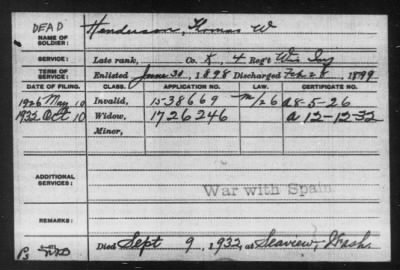 DEAD
NAME OF SOLDIER: Henderson, Thomas W
SERVICE: Late rank, Co. K, 4 Reg't Wis Inf
TERM OF SERVICE: Enlisted June 30, 1898 Discharged Feb 28, 1899
DATE OF FILING. CLASS. APPLICATION NO. LAW. CERTIFICATE NO.
1926 May 10 Invalid, 1538669 /26 a 8-5-26
1932 Oct 10 Widow, 1726246 a 12-12-32
Minor,
ADDITIONAL SERVICES:
War with Spain
REMARKS:
Died Sept 9, 1932, at Seaview, Wash.